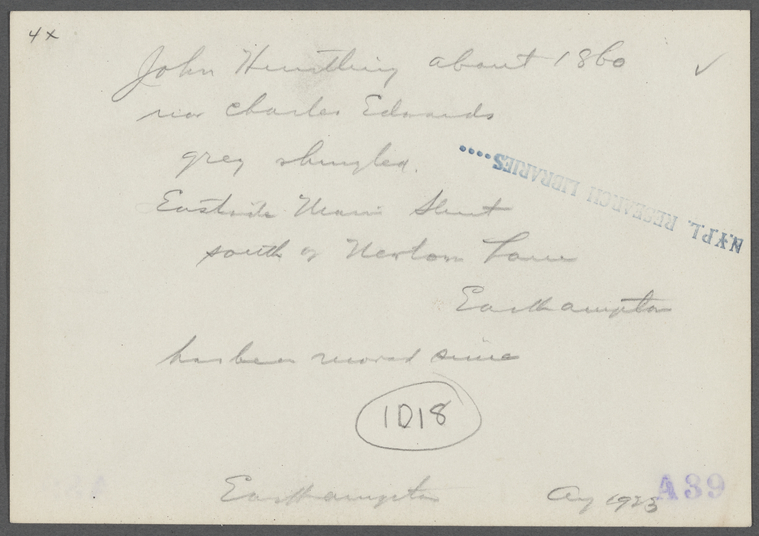 4x
John Huntting about 1860 ✓
now Charles Edwards
grey shingled.
Eastside Main Street
south of Newtown Lane
Easthampton
has been moved since
1D18
Easthampton Aug 1923
A39
N.Y.P.L. RESEARCH LIBRARIES....